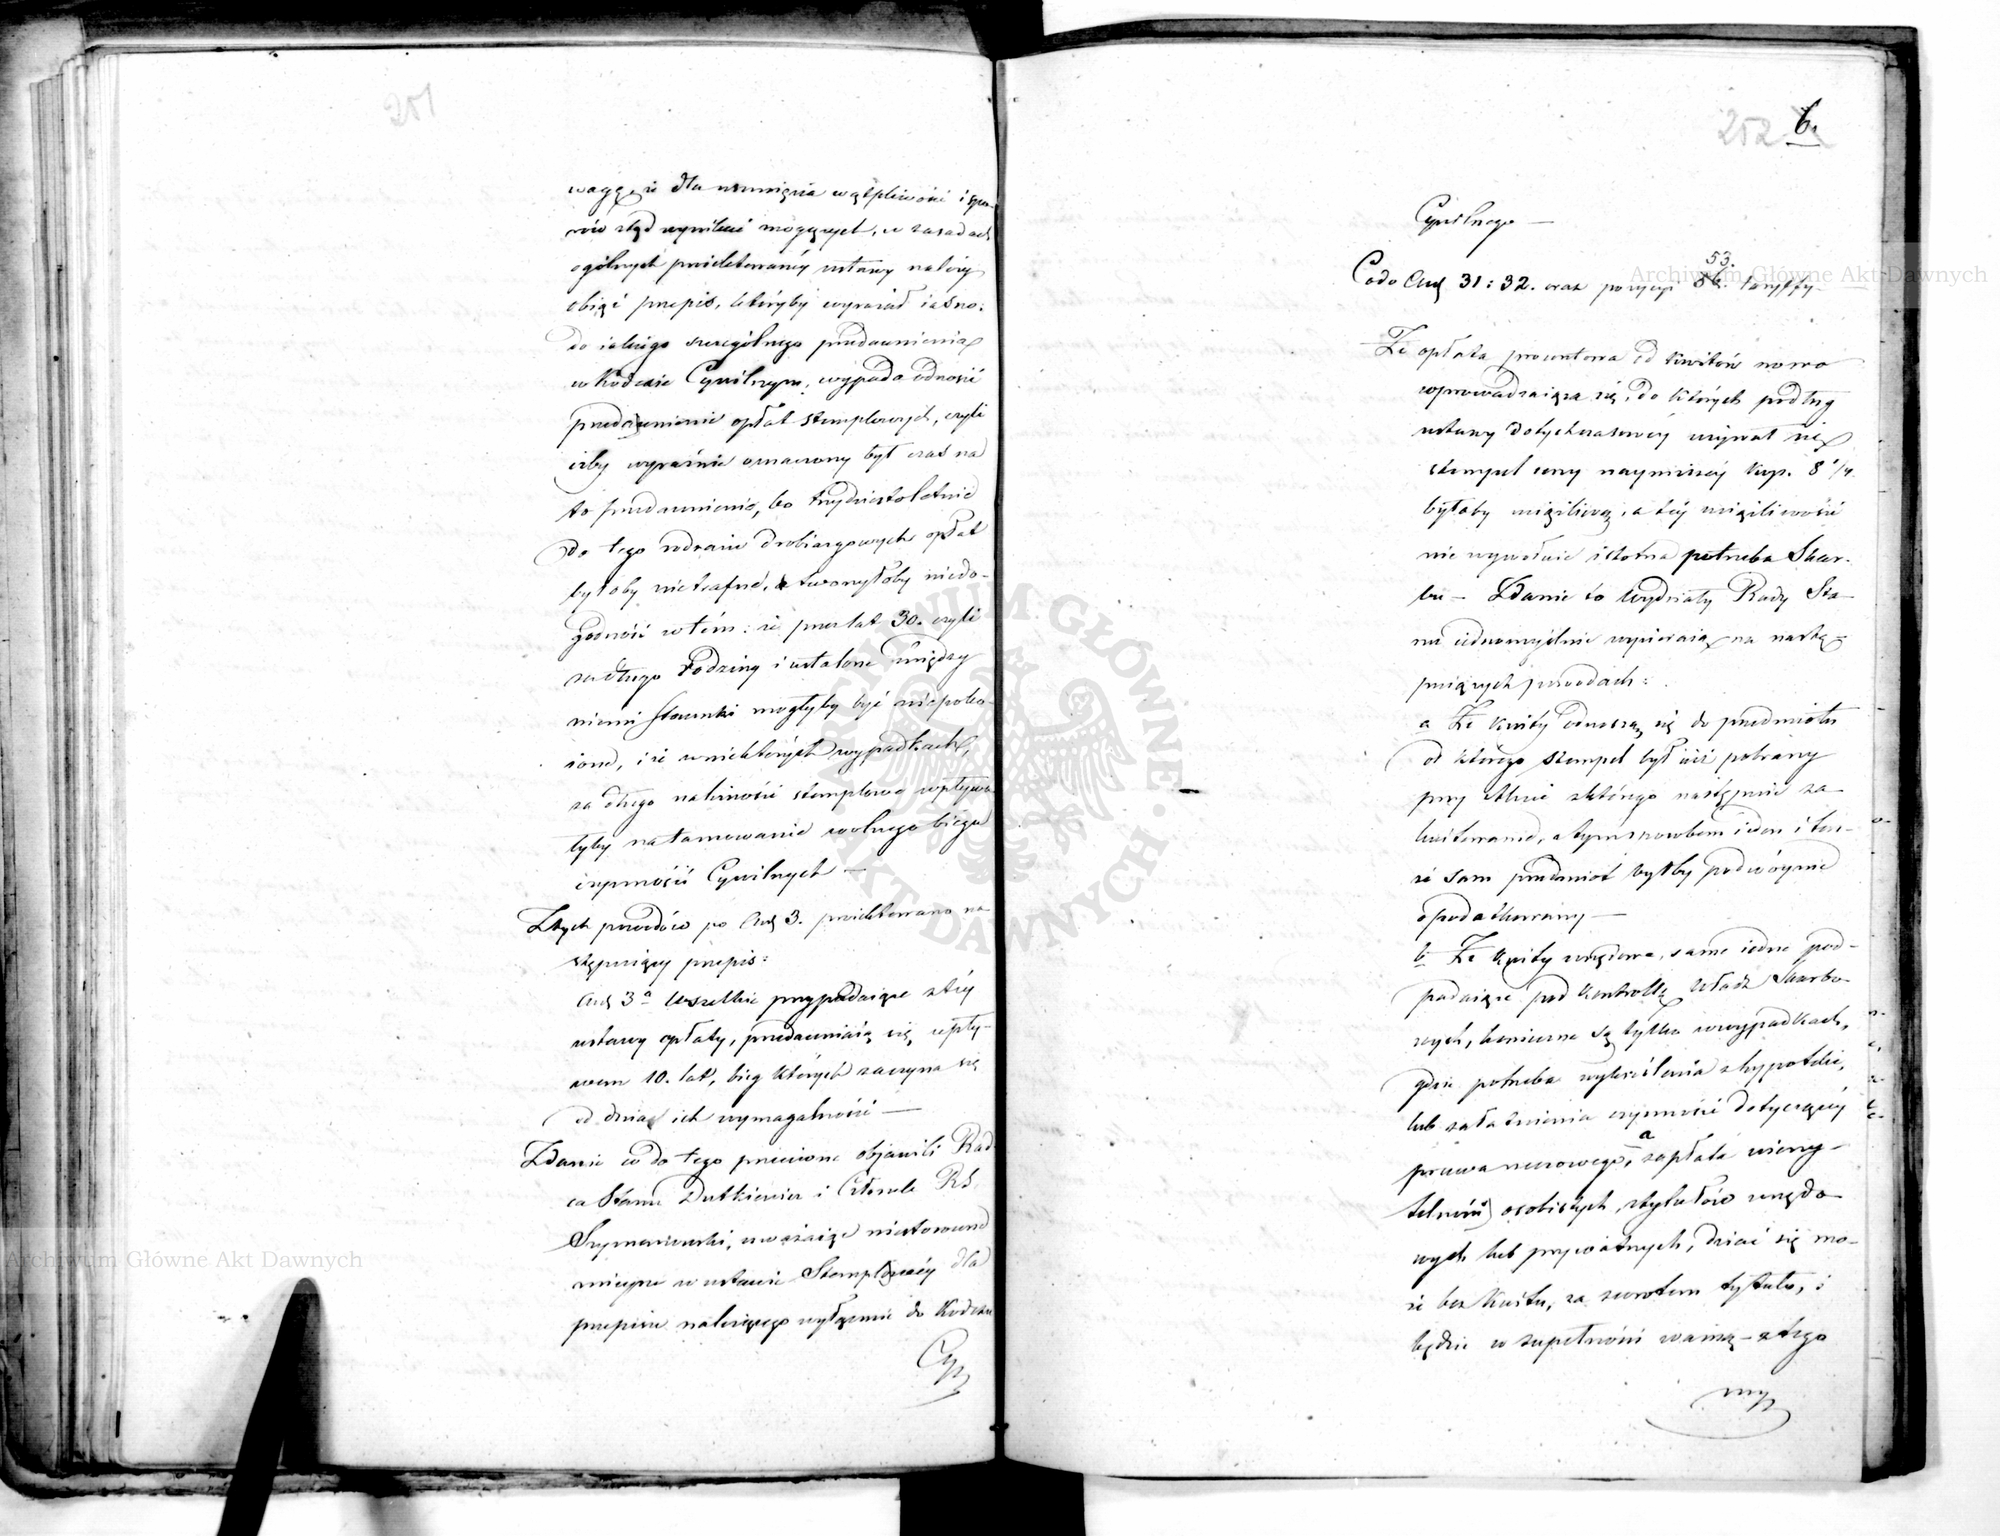 251
wagę, że dla usunięcia wątpliwości i spo-
rów ztąd wyniknąć mogących, w zasadach
ogólnych projektowanéy ustawy należy
objąć przepis, któryby wyrażał iasno:
do iakiego szczególnego przedawnienia
w Kodexie Cywilnym, wypada odnosić
przedawnienie opłat stemplowych, czyli
iżby wyraźnie oznaczony był czas na
to przedawnienie, bo trzydziestoletnie
do tego rodzaiu drobiazgowych opłat
byłoby nietrafne, i tworzyłoby niedo-
godność w tém: że przez lat 30. czyli
za długo Rodziny i ustalone między
niemi stosunki mogłyby być niepoko-
ione, i że w niektórych wypadkach,
za długo należność stemplowa wpływa-
łyby na tamowanie wolnego biegu
czynności Cywilnych —
Z tych powodów po Art 3. proiektowano na-
stępuiący przepis:
Art 3a Wszelkie przypadaiące z téy
ustawy opłaty, przedawniaią się, upły-
wem 10. lat, bieg których zaczyna się
od dnia ich wymagalności —
Zdanie co do tego przeciwne objawili Rad-
ca Stanu Dutkiewicz i Członek RS.
Szymanowski, uważaiąc niestosowne
mieysce w ustawie Stemplowéy dla
przepisu należącego wyłącznie do Kodexu
Cy
252
6.
Cywilnego —
53.
Co do Art 31: 32. oraz pozycyi 56. taryffy —
Że opłata procentowa od kwitów nowo
wprowadzaiąca się, do których podług
ustawy dotychczasowéy używał się
stempel ceny naymnieyszéy kop. 8 1/4
byłaby uciążliwą, a téy uciążliwości
nie wywołuie istotna potrzeba Skar-
bu — Zdanie to Wydziały Rady Sta-
nu iednomyślnie wspieraią na nastę-
puiących powodach:
a Że kwity odnoszą się do przedmiotu
od którego stempel był iuż pobrany
przy Akcie z którego nastąpiło za-
kwitowanie, a tym sposobem ieden i ten-
że sam przedmiot byłby podwóynie
opodatkowany —
b. Że kwity urzędowe, same iedne pod-
padaiące pod kontrollę Władz Skarbo-
wych, konieczne są tylko w wypadkach,
gdzie potrzeba wykreślenia z hypoteki,
lub załatwienia czynności dotyczącéy
prawa rzeczowego, a zapłata wierzy-
telności osobistych, z tytułów urzędo-
wych lub prywatnych, dziać się mo-
że bez kwitu, za zwrotem tytułu, i
będzie w zupełności ważną — z tego
wy
Archiwum Główne Akt Dawnych
Archiwum Główne Akt Dawnych
ARCHIWUM GŁÓWNE AKT DAWNYCH